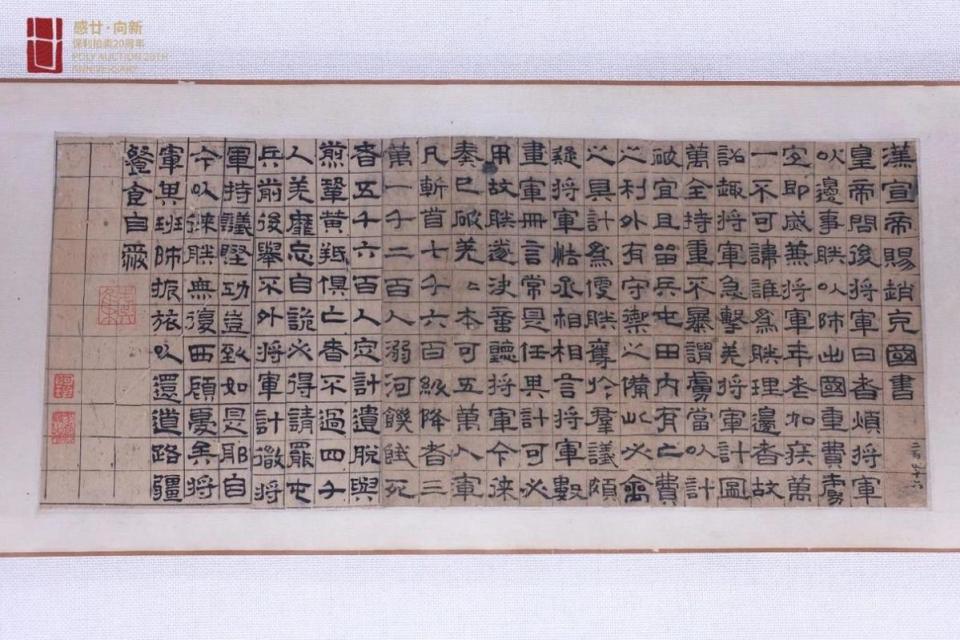 感廿·向新
保利拍卖20周年
POLY AUCTION 20TH
ANNIVERSARY
漢宣帝賜趙充國書
皇帝問後將軍曰昔煩將軍
以邊事朕以師出國重費勞
即無將軍年老加疾萬
一不可諱誰為朕理邊者故
詔趣將軍急擊羌將軍計圖
萬全持重不暴謂虜當以計
破宜且留兵屯田內有亡費
之利外有守禦之備此必禽
之具計為便朕奪於羣議頗
疑將軍惟丞相相言將軍數
畫軍冊言常是任其計可必
用故朕遂決壹聽將軍今徠
奏已破羌〻本可五萬人軍
凡斬首七千六百級降者三
萬一千二百人溺河饑餓死
者五千六百人定計遺脫與
煎鞏黃羝俱亡者不過四千
人羌靡忘自詭必得請罷屯
兵前後舉不外將軍計徹將
軍持議堅功豈致如是耶自
今以徠朕無復西顧憂矣將
軍其班師振旅以還道路彊
餐食自